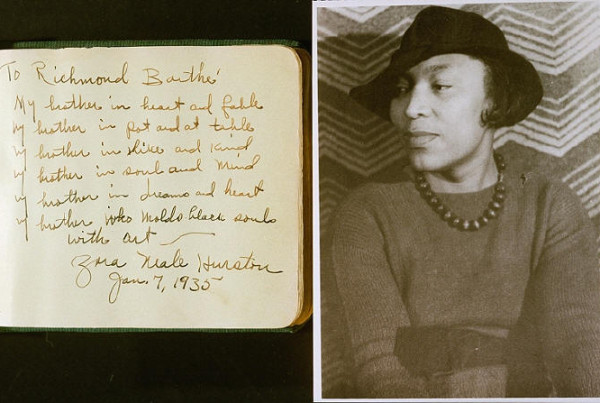 To Richmond Barthé
My brother in heart and fable
My brother in pot and at table
My brother in and kind
My brother in soul and mind
My brother in dreams and heart
My brother who molds black souls
with art —
Zora Neale Hurston
Jan. 7, 1935